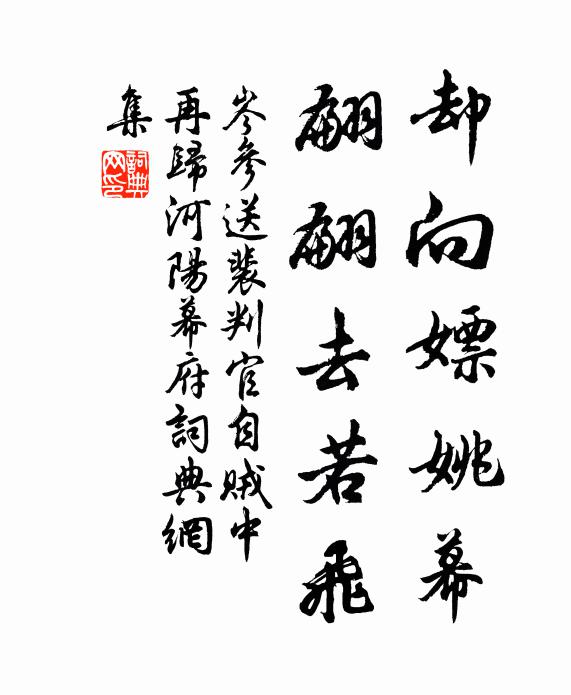 却向嫖姚幕
翩翩去若飛
岑參送裴判官自賊中
再歸河陽幕府詞典網
集
詞典
网印